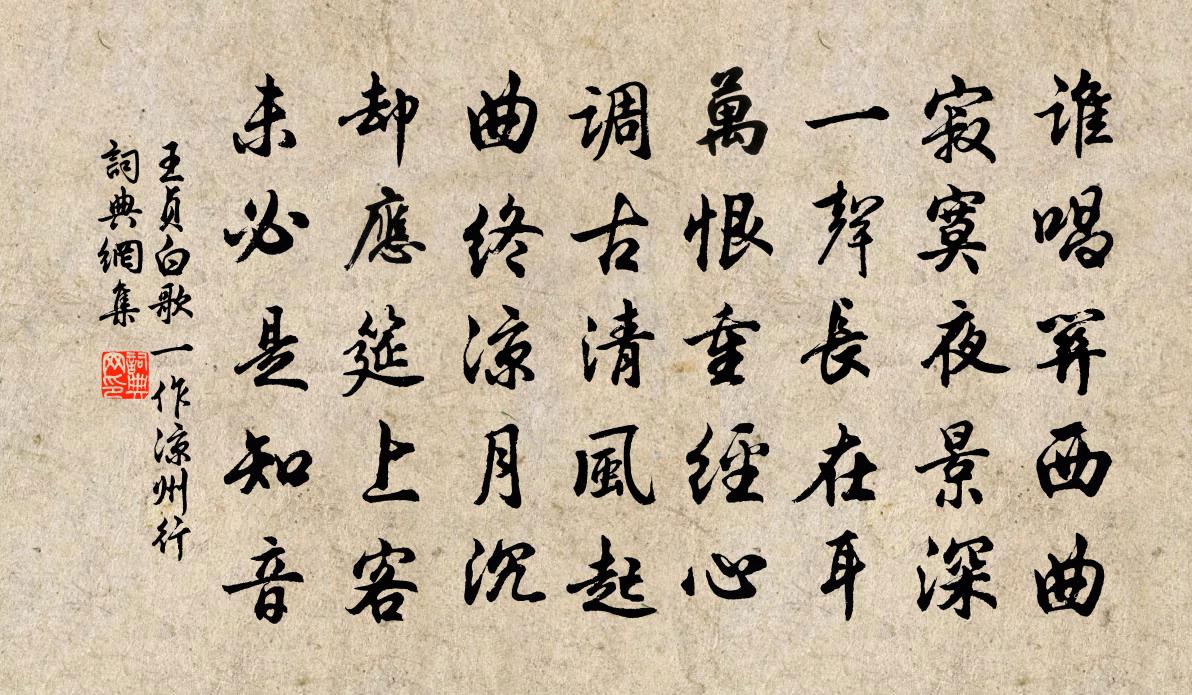 谁唱关西曲
寂寞夜景深
一聲長在耳
萬恨重經心
调古清風起
曲終涼月沉
却應筵上客
未必是知音
王貞白歌一作涼州行
詞典網集
詞典网印